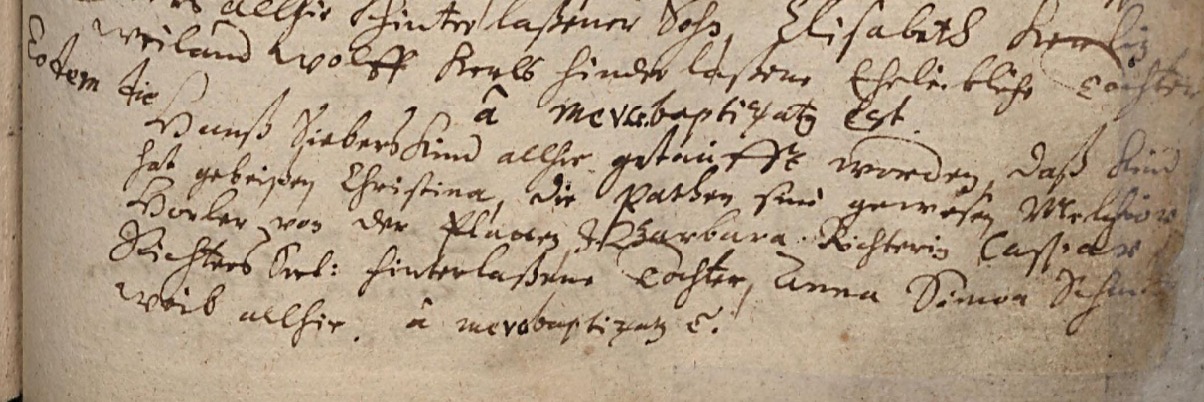 allhir hinterlaßener Sohn, Elisabeth
weiland Wolff Kerls hinderlaßene Eheleibliche Tochter
â me vero baptizatg Est.
Eodem die
Hanß Siebers Kind allhir getaufft worden, daß Kind
hat geheißen Christina, die Pathen sind gewesen Melchior
von der Planen, Barbara Richterin Caspar
Richters Seel: hinterlaßene Tochter, Anna Simon
weib allhir. â me vero baptizatg E.